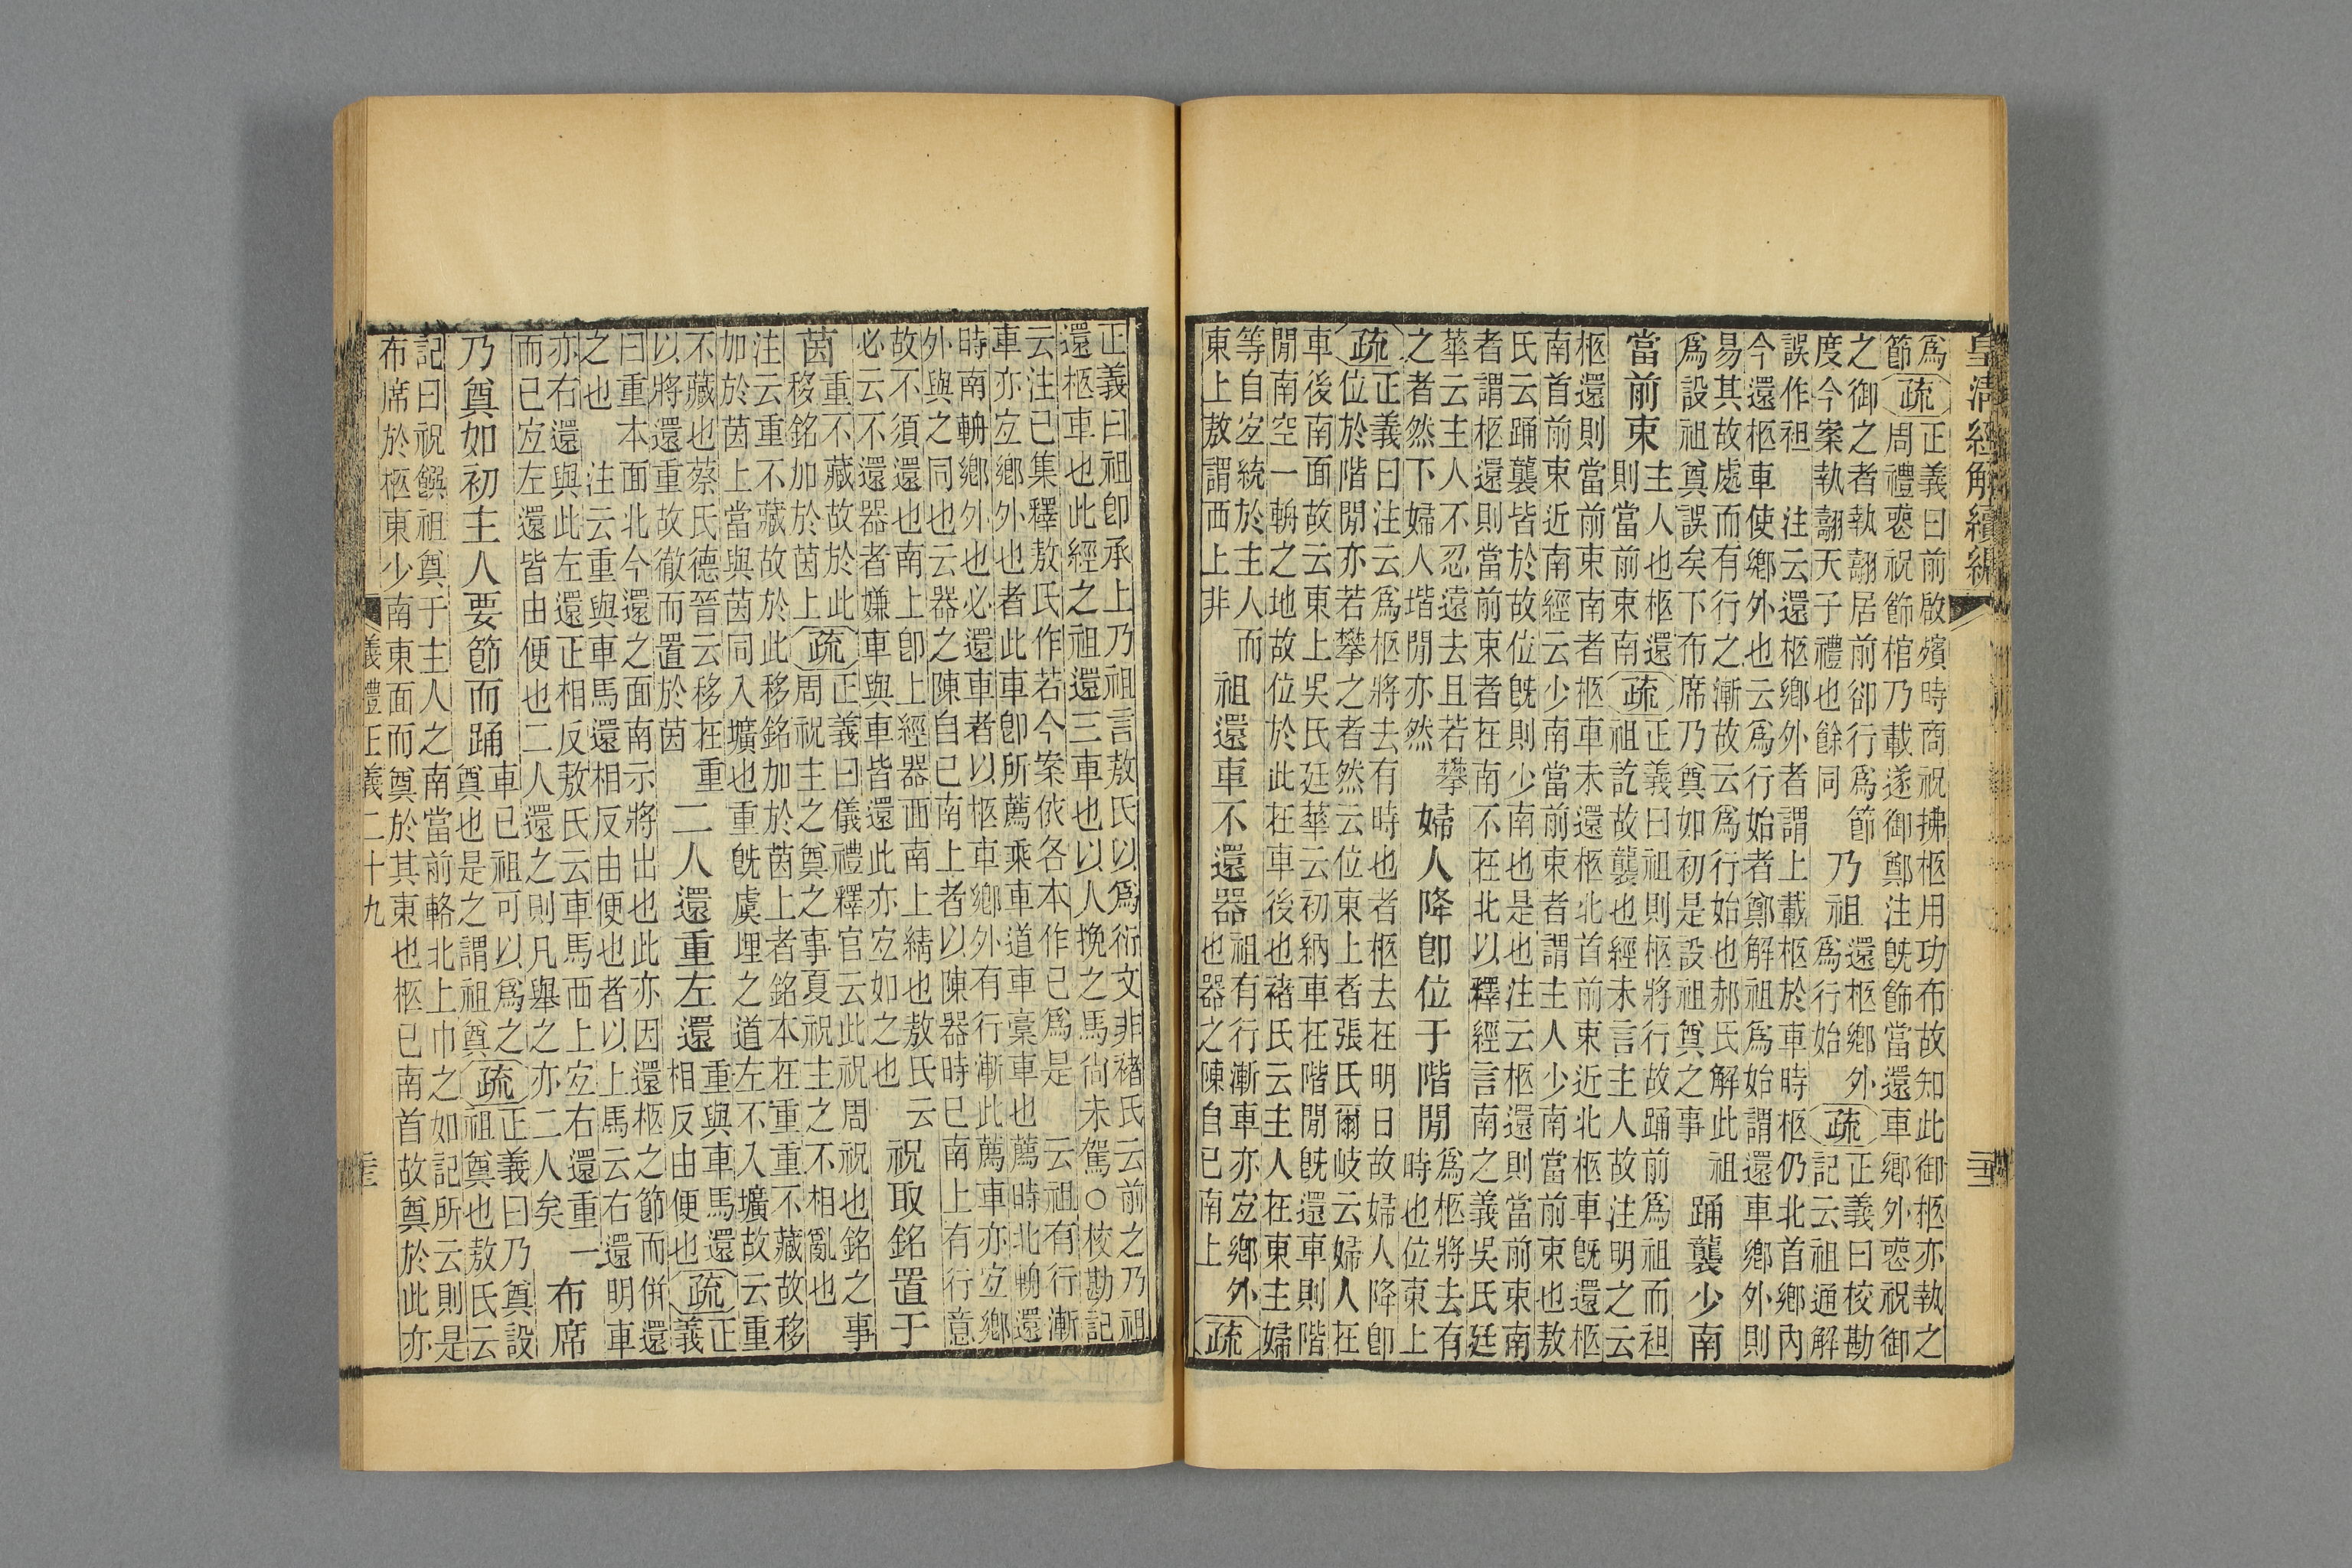 皇清經解續編
爲
節
疏
正義曰前啟殯時商祝拂柩用功布故知此御柩亦執之
周禮喪祝飾棺乃載遂御鄭注既飾當還車鄉外喪祝御
之御之者執翿居前卻行爲節
度今案執翿天子禮也餘同
乃祖
還柩鄉外
爲行始
疏
正義曰校勘
記云祖通解
誤作袒　注云還柩鄉外者謂上載柩於車時柩仍北首鄉內
今還柩車使鄉外也云爲行始者鄭解祖爲始謂還車鄉外則
易其故處而有行之漸故云爲行始也郝氏解此祖
爲設祖奠誤矣下布席乃奠如初是設祖奠之事
踊襲少南
當前束
主人也柩還
則當前束南
疏
正義曰祖則柩將行故踊前爲祖而袒
祖訖故襲也經未言主人故注明之云
柩還則當前束南者柩車未還柩北首前束近北柩車既還柩
南首前束近南經云少南當前束者謂主人少南當前束也敖
氏云踊襲皆於故位既則少南也是也注云柩還則當前束南
者謂柩還則當前束者在南不在北以釋經言南之義吳氏廷
華云主人不忍遠去且若攀
之者然下婦人堦閒亦然
婦人降卽位于階閒
爲柩將去有
時也位東上
疏
正義曰注云爲柩將去有時也者柩去在明日故婦人降卽
位於階閒亦若攀之者然云位東上者張氏爾岐云婦人在
車後南面故云東上吳氏廷華云初納車在階閒既還車則階
閒南空一輈之地故位於此在車後也褚氏云主人在東主婦
等自宐統於主人而
東上敖謂西上非
祖還車不還器
祖有行漸車亦宐鄉外
也器之陳自已南上
疏
正義曰祖卽承上乃祖言敖氏以爲衍文非褚氏云前之乃祖
還柩車也此經之祖還三車也以人挽之馬尚未駕○校勘記
云注已集釋敖氏作若今案依各本作已爲是　云祖有行漸
車亦宐鄉外也者此車卽所薦乘車道車稾車也薦時北輈還
時南輈鄉外也必還車者以柩車鄉外有行漸此薦車亦宐鄉
外與之同也云器之陳自已南上者以陳器時已南上有行意
故不須還也南上卽上經器西南上綪也敖氏云
必云不還器者嫌車與車皆還此亦宐如之也
祝取銘置于
茵
重不藏故於此
移銘加於茵上
疏
正義曰儀禮釋官云此祝周祝也銘之事
周祝主之奠之事夏祝主之不相亂也
注云重不藏故於此移銘加於茵上者銘本在重重不藏故移
加於茵上當與茵同入壙也重既虞埋之道左不入壙故云重
不藏也蔡氏德晉云移在重
以將還重故徹而置於茵
二人還重左還
重與車馬還
相反由便也
疏
正
義
曰重本面北今還之面南示將出也此亦因還柩之節而併還
之也　注云重與車馬還相反由便也者以上馬云右還明車
亦右還與此左還正相反敖氏云車馬西上宐右還重一
而已宐左還皆由便也二人還之則凡舉之亦二人矣
布席
乃奠如初主人要節而踊
車已祖可以爲之
奠也是之謂祖奠
疏
正義曰乃奠設
祖奠也敖氏云
記曰祝饌祖奠于主人之南當前輅北上巾之如記所云則是
布席於柩東少南東面而奠於其東也柩已南首故奠於此亦
儀禮正義二十九